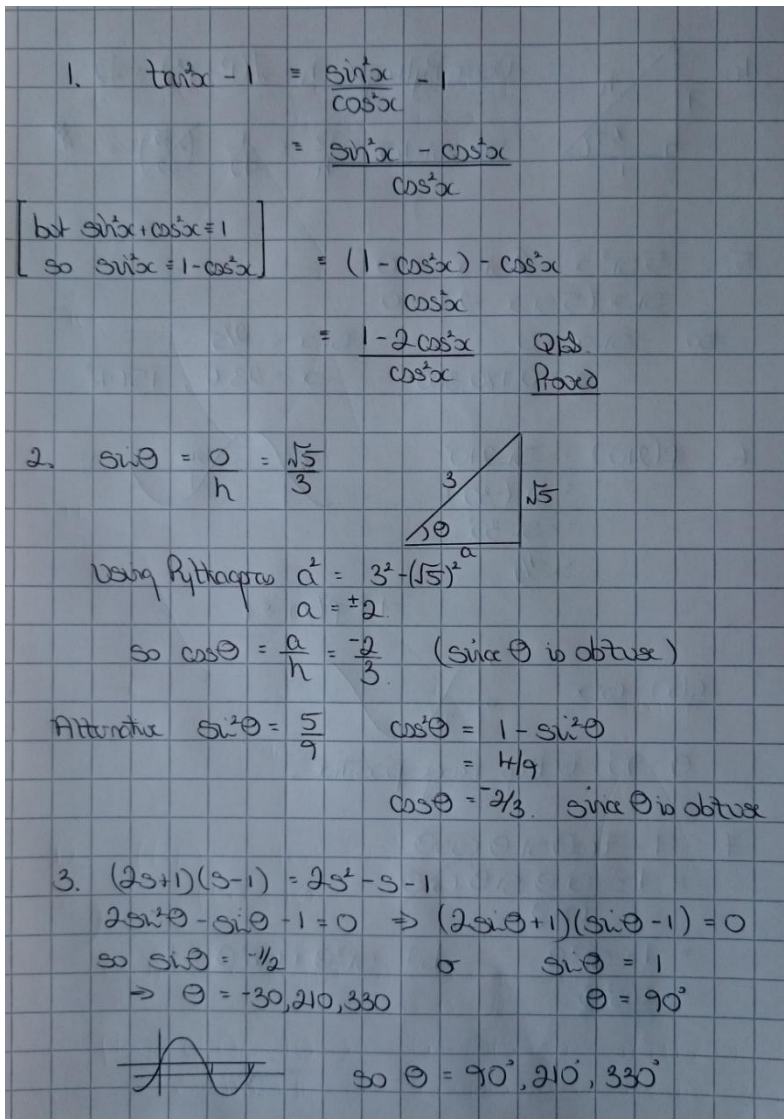 1. tan²x - 1 ≡ sin²x/cos²x - 1
≡ (sin²x - cos²x)/cos²x
[but sin²x + cos²x ≡ 1
so sin²x ≡ 1 - cos²x]
= ((1 - cos²x) - cos²x)/cos²x
= (1 - 2cos²x)/cos²x QED
Proved
2. sinθ = o/h = √5/3
3 √5 θ a
Using Pythagoras a² = 3² - (√5)²
a = ±2
so cosθ = a/h = -2/3. (since θ is obtuse)
Alternative sin²θ = 5/9 cos²θ = 1 - sin²θ
= 4/9
cosθ = -2/3. since θ is obtuse
3. (2s+1)(s-1) = 2s² - s - 1
2sin²θ - sinθ - 1 = 0 ⇒ (2sinθ+1)(sinθ-1) = 0
so sinθ = -1/2 or sinθ = 1
⇒ θ = -30, 210, 330 θ = 90°
so θ = 90°, 210°, 330°